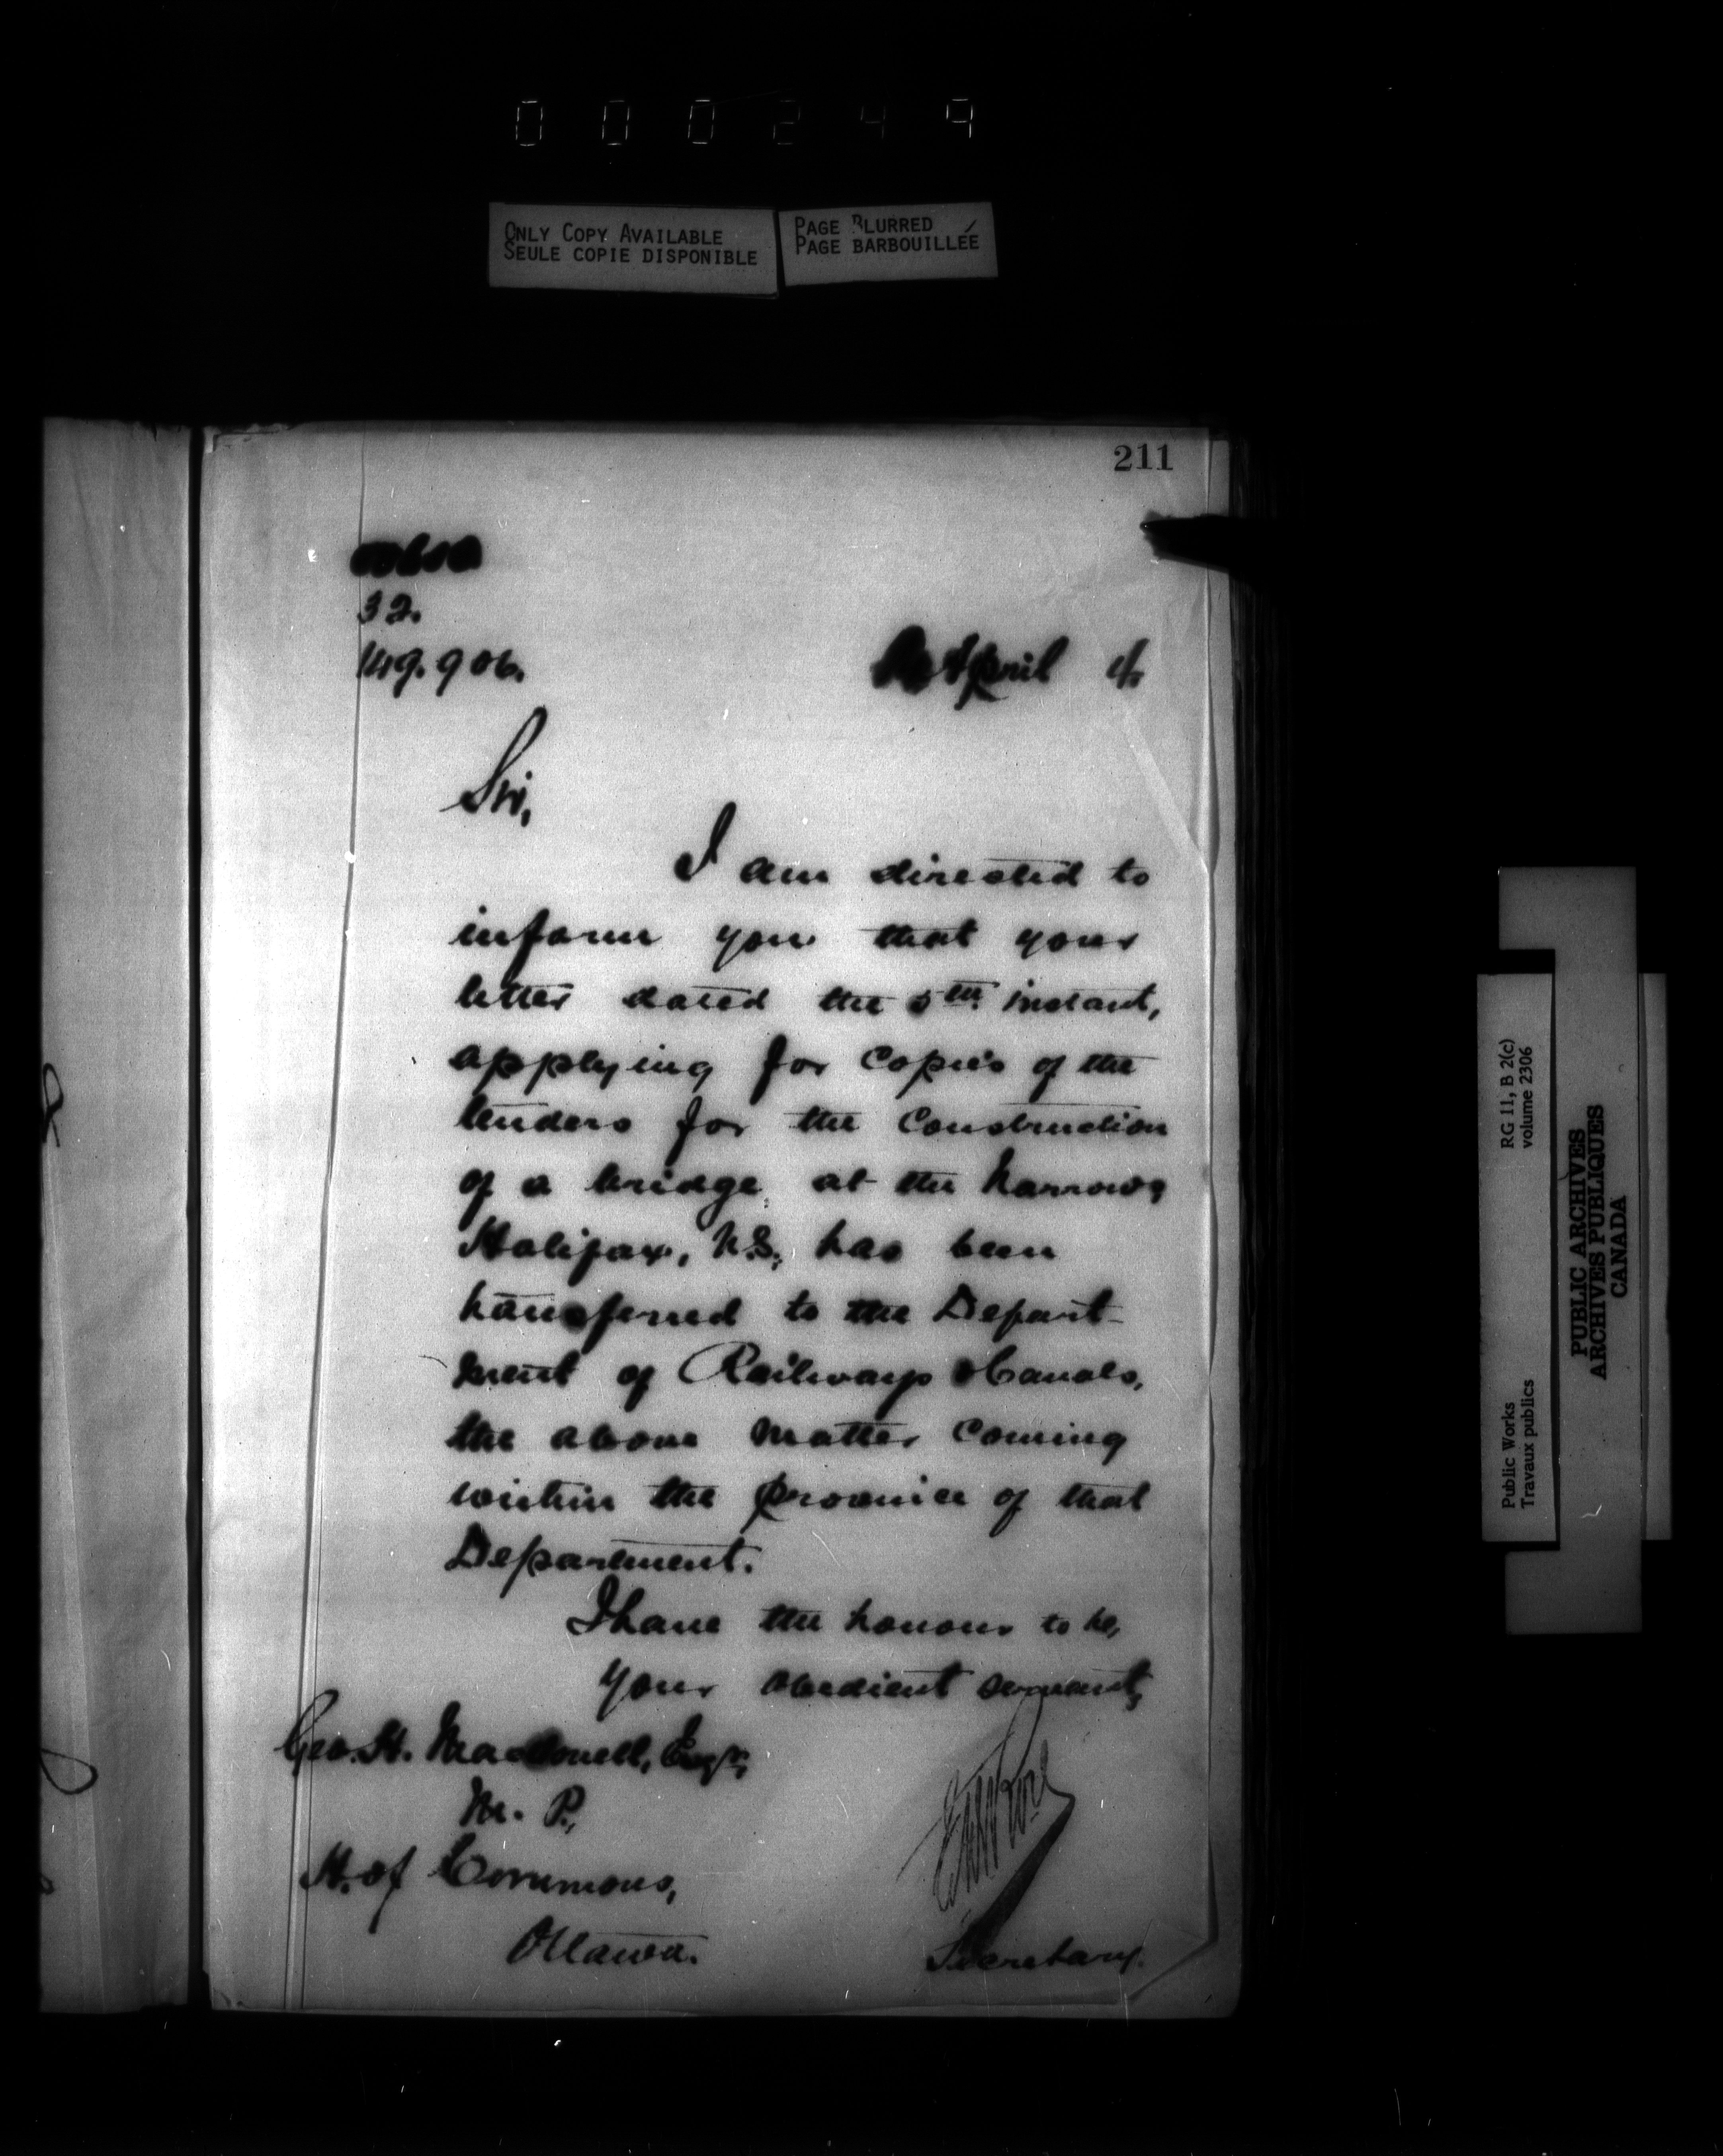 000249
ONLY COPY AVAILABLE
SEULE COPIE DISPONIBLE
PAGE BLURRED
PAGE BARBOUILLÉE
211
32.
149.906.
April
Sir,
I am directed to
inform you that your
letter dated the 5th instant,
applying for copies of the
tenders for the construction
of a bridge at the Narrows
Halifax, N.S., has been
transferred to the Depart-
ment of Railways & Canals,
the above matter coming
within the province of that
Department.
I have the honour to be,
Your obedient servant,
Geo. H. Macdonell, Esqr,
M. P.,
H. of Commons,
Ottawa.
Secretary.
RG 11, B 2(c)
volume 2306
Public Works
Travaux publics
PUBLIC ARCHIVES
ARCHIVES PUBLIQUES
CANADA